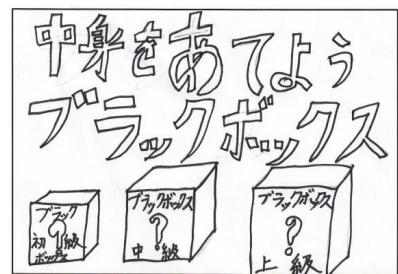 中身をあてよう
ブラックボックス
ブラック
?
初級
ボックス
ブラックボックス
?
中級
ブラックボックス
?
上級